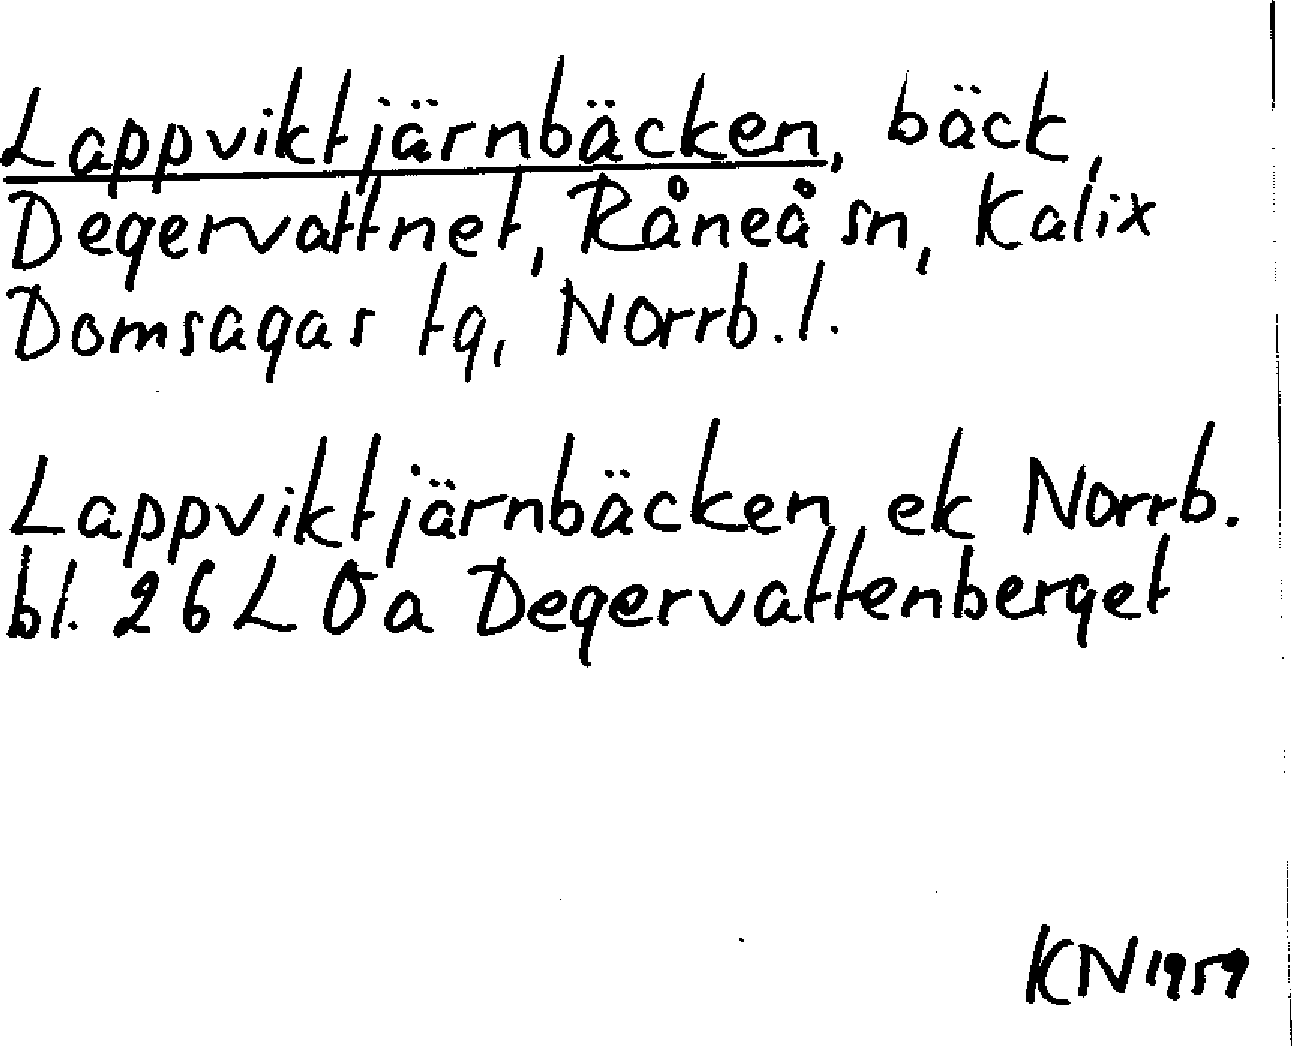 Lappviktjärnbäcken, bäck,
Degervattnet, Råneå sn, Kalix
Domsagas tg, Norrb. l.
Lappviktjärnbäcken ek Norrb.
bl. 26 L 0a Degervattenberget
KN 1959